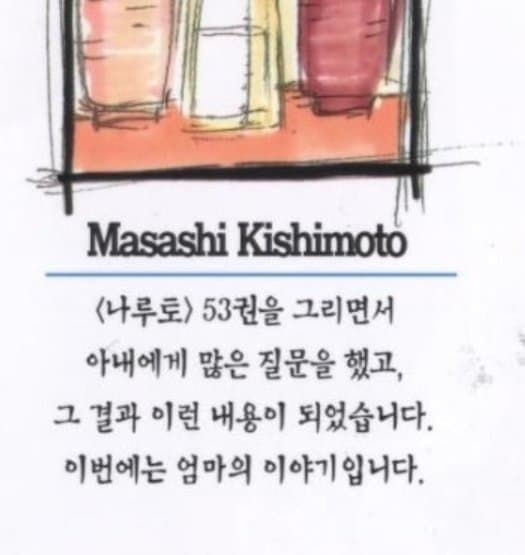 Masashi Kishimoto
〈나루토〉 53권을 그리면서
아내에게 많은 질문을 했고,
그 결과 이런 내용이 되었습니다.
이번에는 엄마의 이야기입니다.